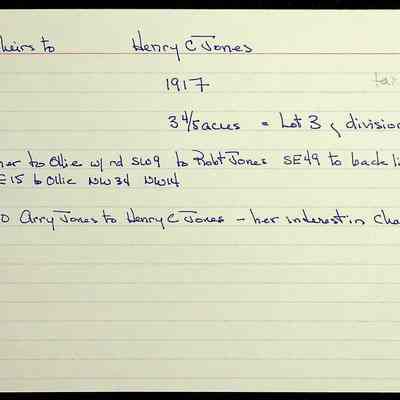 heirs to Henry C Jones
1917
tax
3 4/5 acres = Lot 3 division
ner to Ollie w/ rd SW9 to Robt Jones SE49 to back li
E15 to Ollie NW34 NW14
Arry Jones to Henry C Jones - her interest in Cha